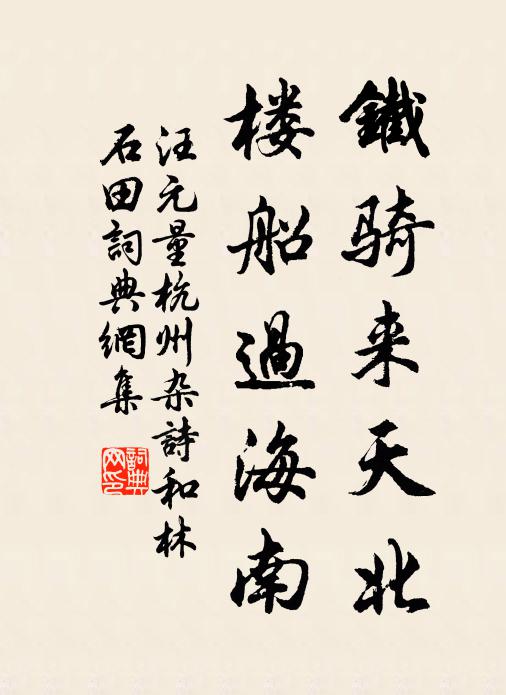 鐵騎来天北
楼船過海南
汪元量杭州杂詩和林
石田詞典網集
詞典网印